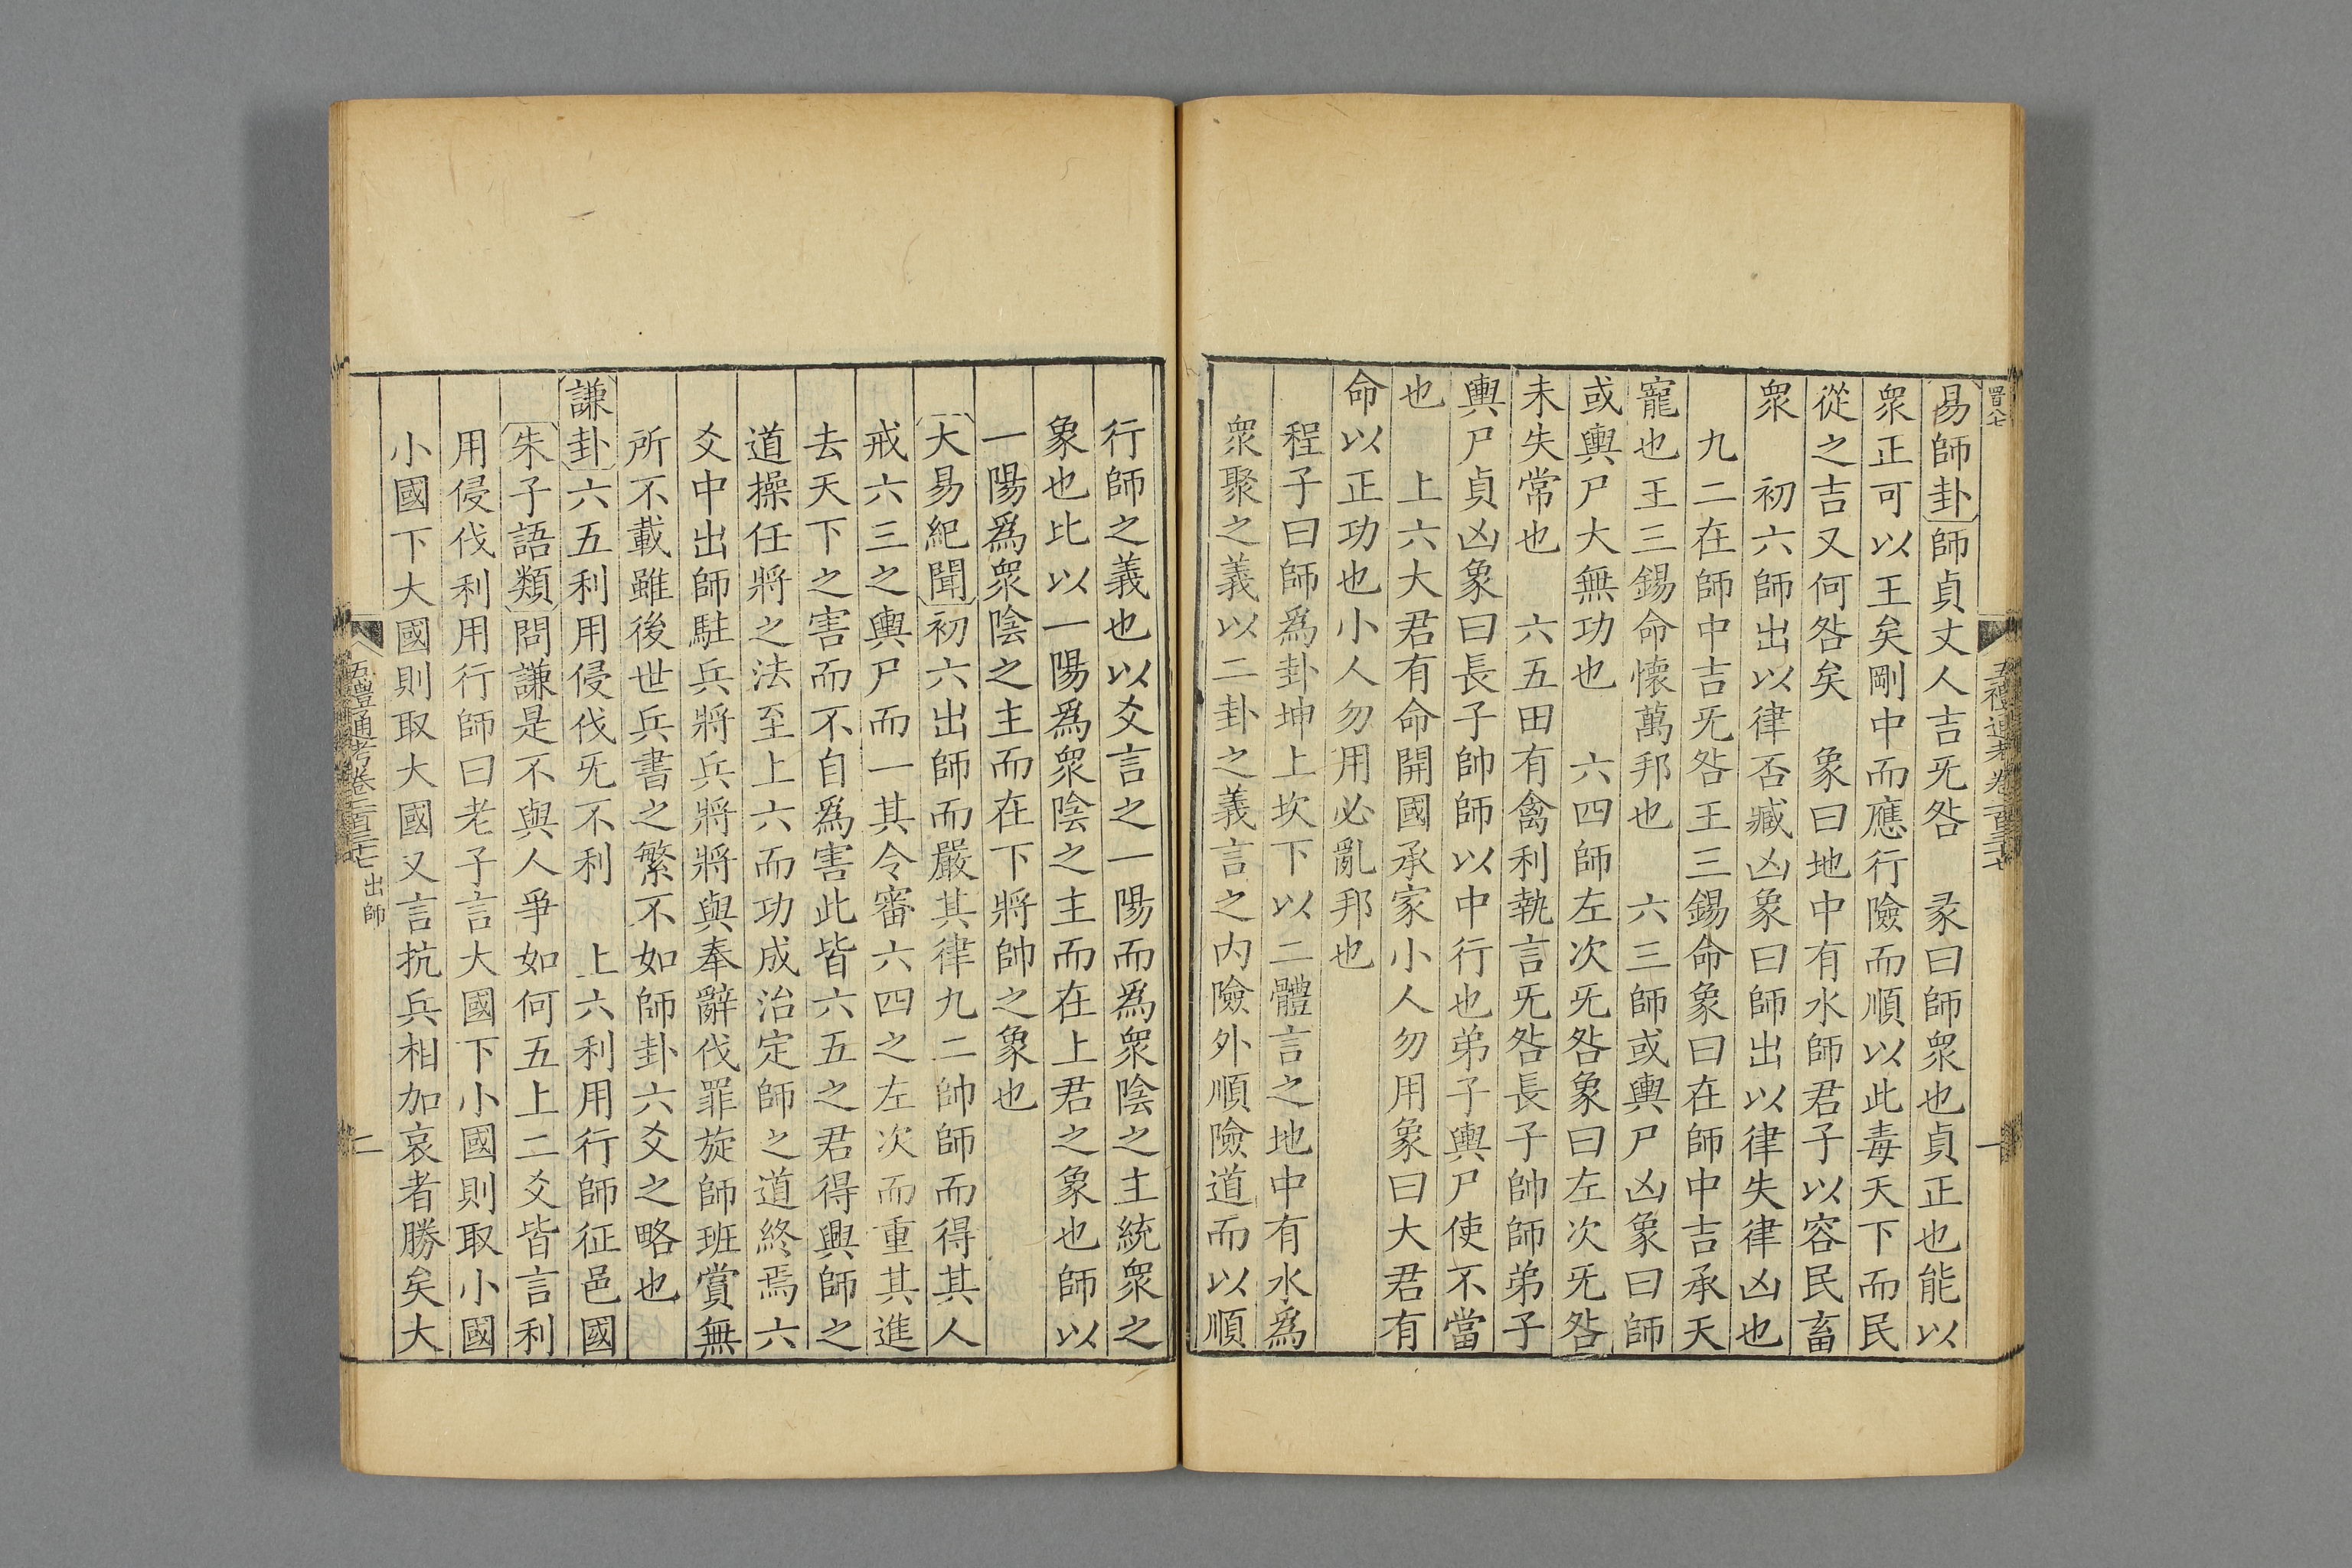 易師卦師貞丈人吉旡咎　彖曰師衆也貞正也能以
衆正可以王矣剛中而應行險而順以此毒天下而民
從之吉又何咎矣　象曰地中有水師君子以容民畜
衆　初六師出以律否臧凶象曰師出以律失律凶也
九二在師中吉旡咎王三錫命象曰在師中吉承天
寵也王三錫命懷萬邦也　六三師或輿尸凶象曰師
或輿尸大無功也　六四師左次旡咎象曰左次旡咎
未失常也　六五田有禽利執言旡咎長子帥師弟子
輿尸貞凶象曰長子帥師以中行也弟子輿尸使不當
也　上六大君有命開國承家小人勿用象曰大君有
命以正功也小人勿用必亂邦也
程子曰師爲卦坤上坎下以二體言之地中有水爲
衆聚之義以二卦之義言之内險外順險道而以順
行師之義也以爻言之一陽而爲衆陰之主統衆之
象也比以一陽爲衆陰之主而在上君之象也師以
一陽爲衆陰之主而在下將帥之象也
大易紀聞初六出師而嚴其律九二帥師而得其人
戒六三之輿尸而一其令審六四之左次而重其進
去天下之害而不自爲害此皆六五之君得興師之
道操任將之法至上六而功成治定師之道終焉六
爻中出師駐兵將兵將將與奉辭伐罪旋師班賞無
所不載雖後世兵書之繁不如師卦六爻之略也
謙卦六五利用侵伐旡不利　上六利用行師征邑國
朱子語類問謙是不與人爭如何五上二爻皆言利
用侵伐利用行師曰老子言大國下小國則取小國
小國下大國則取大國又言抗兵相加哀者勝矣大
五禮通考卷二百三十七
出師
二
一